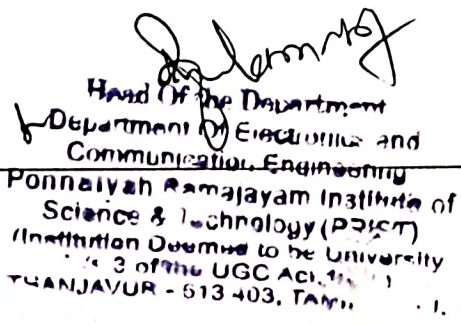 Head Of the Department
Department of Electronics and
Communication Engineering
Ponnaiyah Ramajayam Institute of
Science & Technology (PRIST)
(Institution Deemed to be University
3 of the UGC Act,
THANJAVUR - 613 403,